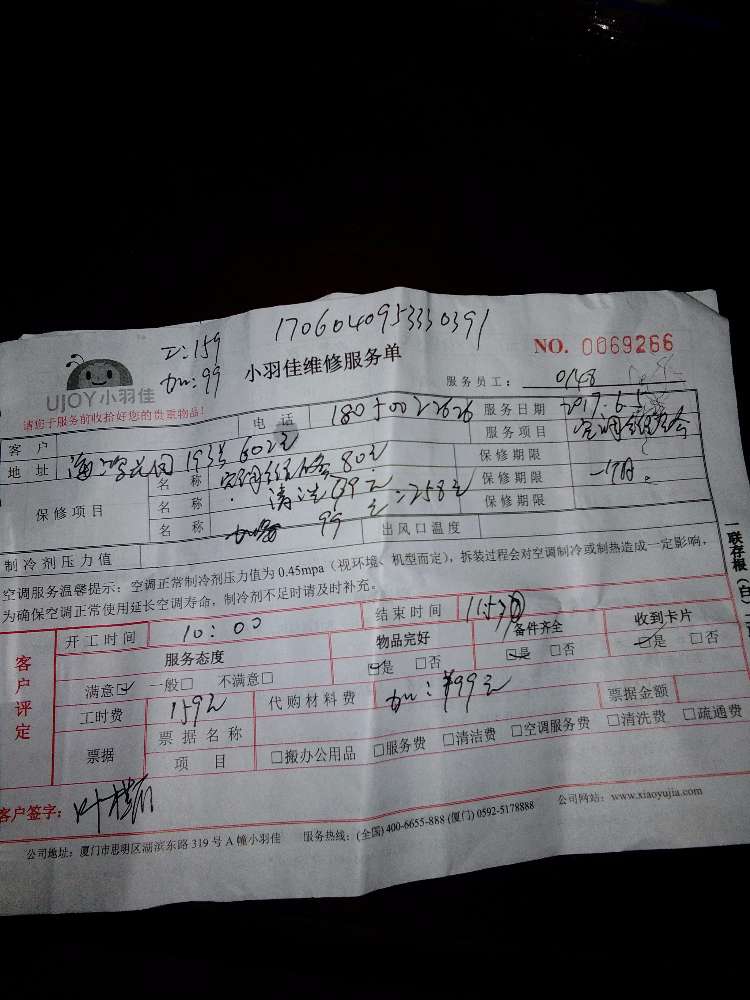 工:159
加:99
1706040953330391
UJOY小羽佳
小羽佳维修服务单
NO. 0069266
服务员工: 0148
请您于服务前收拾好您的贵重物品!
客户 电话 18050022626 服务日期 2017.6.5
地址 海鸿花园 19号602 服务项目 空调维修
保修项目 名称 空调维修80元 保修期限
名称 清洗 79元 =258元 保修期限 一个月。
名称 加 99元 保修期限
制冷剂压力值 出风口温度
空调服务温馨提示:空调正常制冷剂压力值为 0.45mpa(视环境、机型而定),拆装过程会对空调制冷或制热造成一定影响,
为确保空调正常使用延长空调寿命,制冷剂不足时请及时补充。
一联存根(白)
客户评定
开工时间 10:00 结束时间 11:30
服务态度 物品完好 备件齐全 收到卡片
满意☑ 一般□ 不满意□ ☑是 □否 ☑是 □否 ☑是 □否
工时费 159元 代购材料费 加:¥99元 票据金额
票据 票据名称
项目 □搬办公用品 □服务费 □清洁费 □空调服务费 □清洗费 □疏通费
客户签字: 叶
公司地址:厦门市思明区湖滨东路 319 号 A 幢小羽佳 服务热线:(全国) 400-6655-888 (厦门) 0592-5178888 公司网站:www.xiaoyujia.com